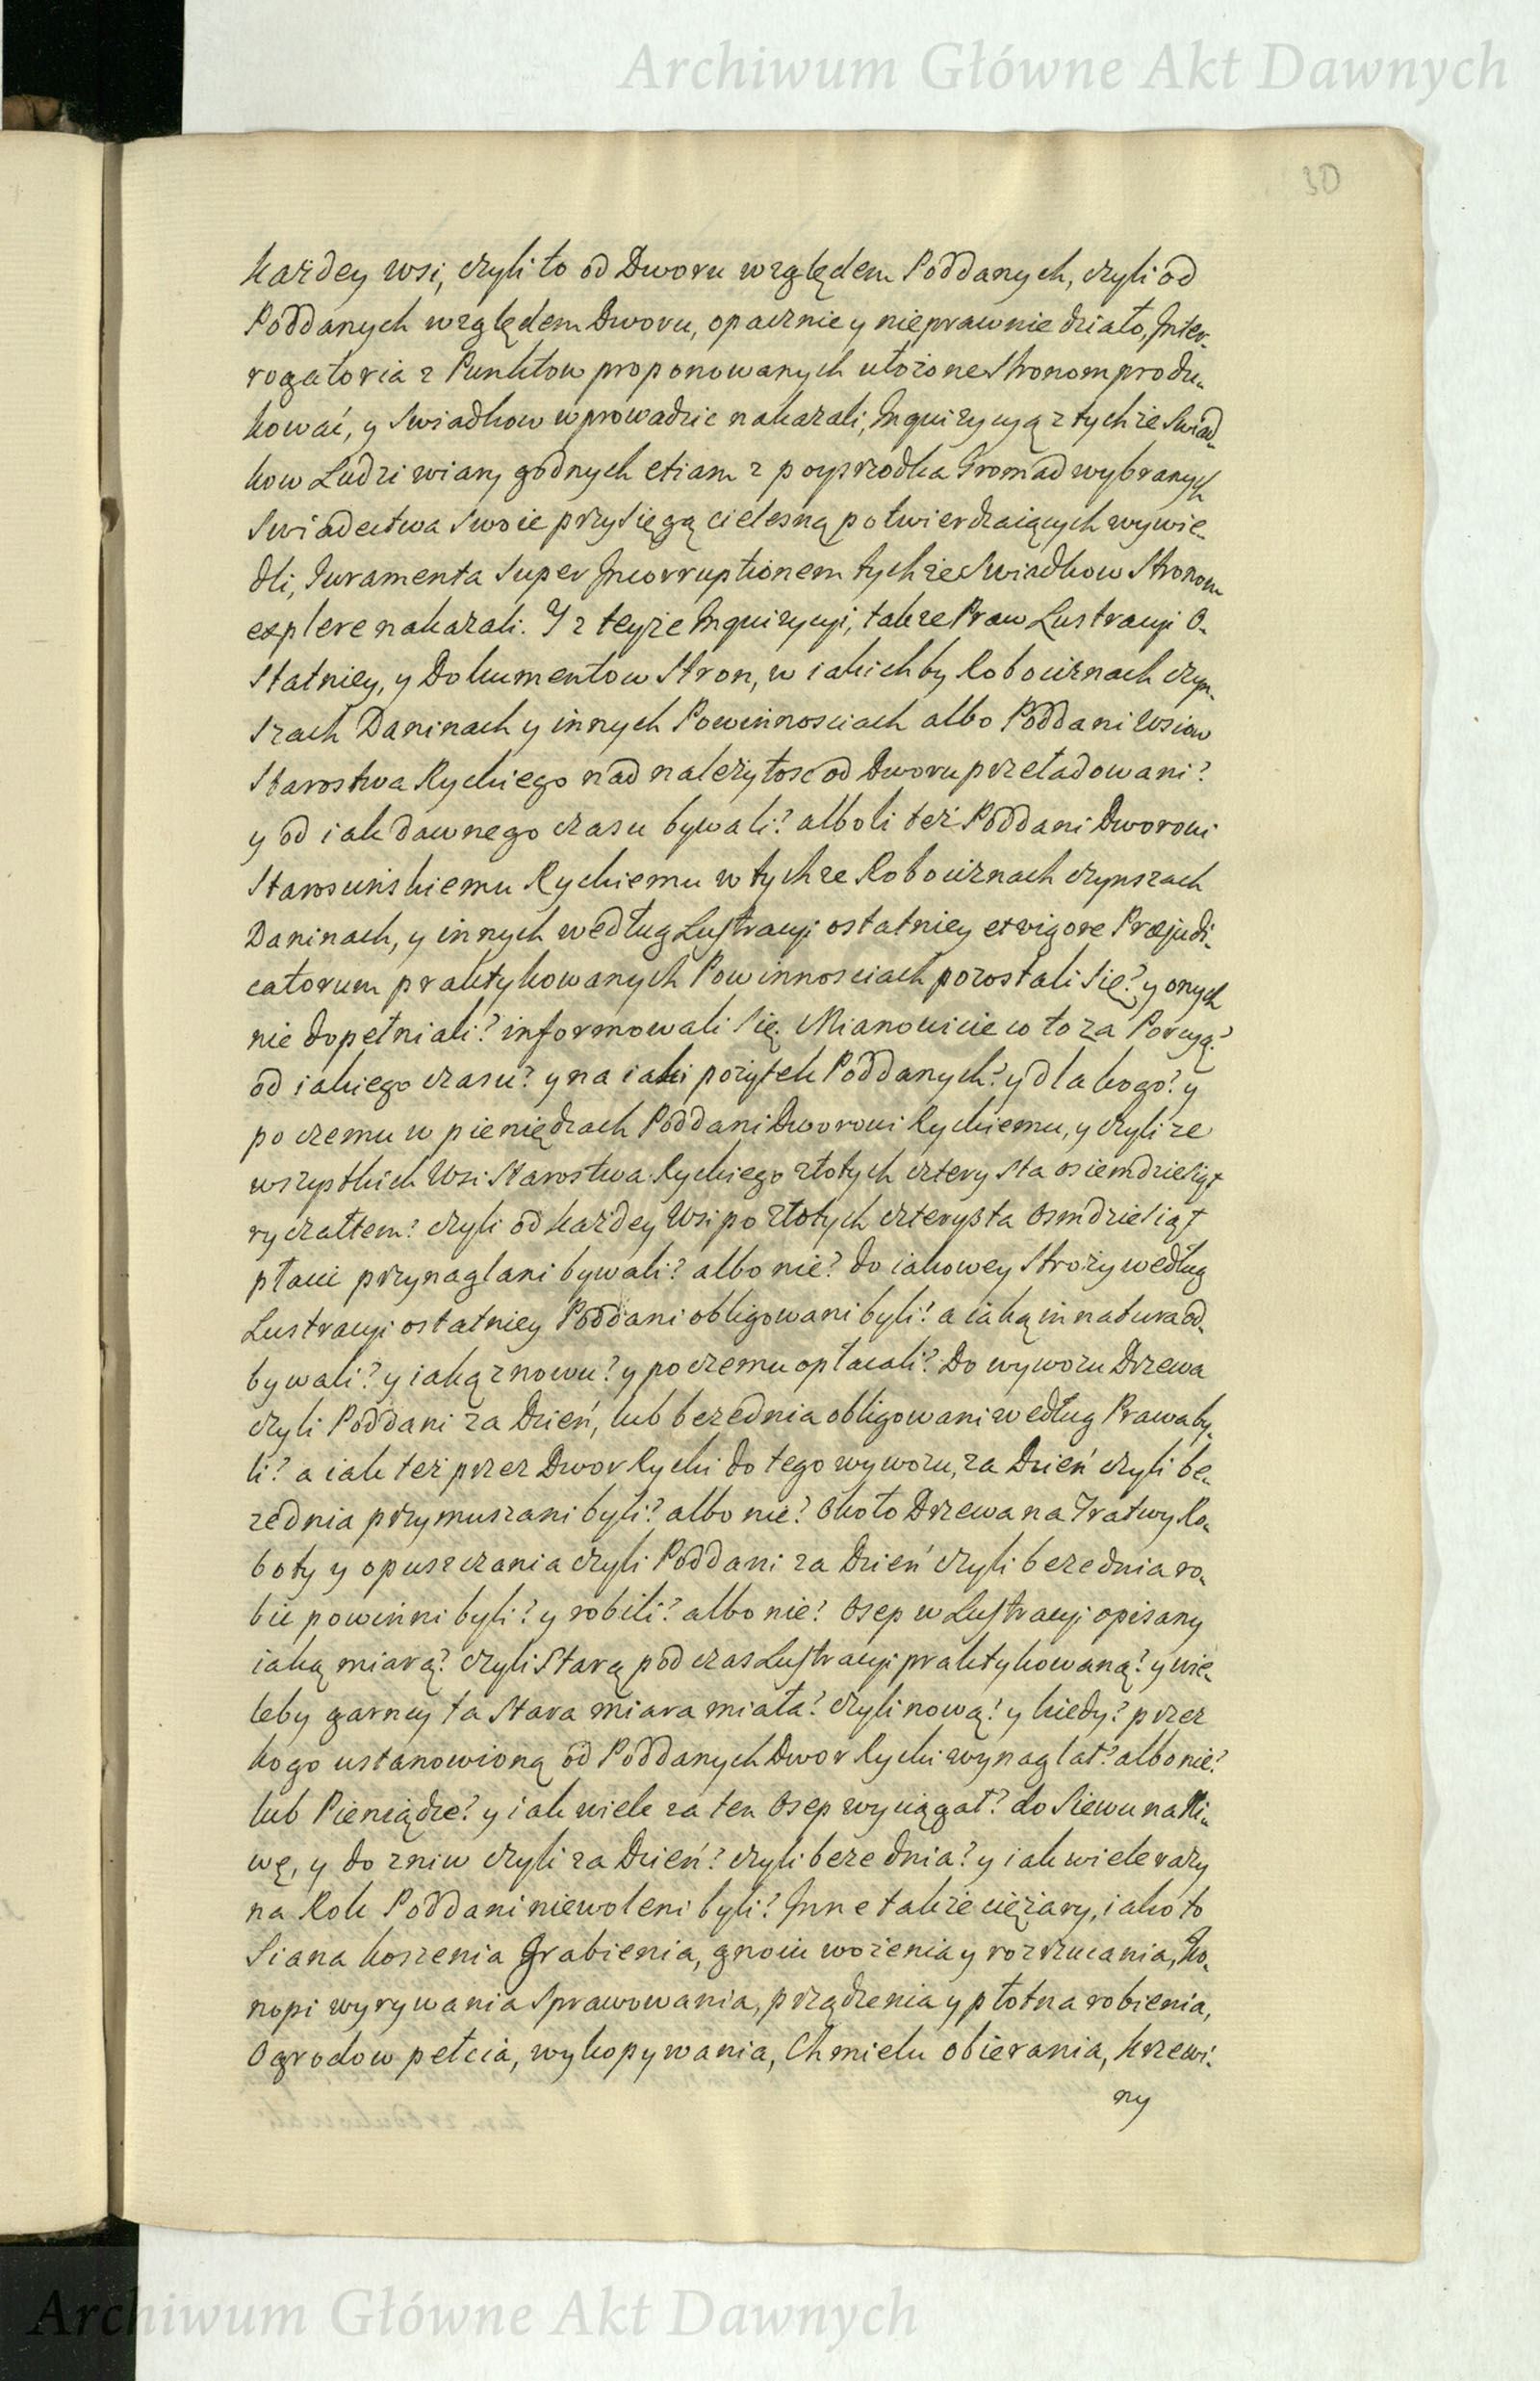 Archiwum Główne Akt Dawnych
30
każdey wsi, czyli to od Dworu względem Poddanych, czyli od
Poddanych względem Dworu, opacznie y nieprawnie działo, Inter-
rogatoria z Punktow proponowanych ułożone Stronom produ-
kować, y Swiadkow wprowadzic nakazali, Inquizycyą z tychże Swiad-
kow Ludzi wiary godnych etiam z poyszrodka Gromad wybranych
Swiadectwa Swoie przysięgą cielesną potwierdzaiących wywie-
dli, Juramenta Super Incorruptionem tychże Swiadkow Stronom
explere nakazali. Y z teyże Inquizycyi, także Praw Lustracyi O-
statniey, y Dokumentow Stron, w iakichby Robociznach czyn-
szach Daninach y innych Powinnosciach albo Poddani Wsiow
Starostwa Ryckiego nad należytosc od Dworu przeładowani?
y od iak dawnego czasu bywali? alboli też Poddani Dworowi
Staroscinskiemu Ryckiemu w tychże Robociznach czynszach
Daninach, y innych według Lustracyi ostatniey et vigore Præjudi-
catorum praktykowanych Powinnosciach pozostali Się? y onych
nie dopełniali? informowali Się. Mianowicie co to za Porcyą?
od iakiego czasu? y na iaki pożytek Poddanych? y dla kogo? y
po czemu w pieniędzach Poddani Dworowi Ryckiemu, y czyli ze
wszystkich Wsi Starostwa Ryckiego złotych cztery Sta osiemdziesiąt
ryczałtem? czyli od każdey Wsi po złotych czterysta osmdziesiąt
płacic przynaglani bywali? albo nie? do iakowey Stroży według
Lustracyi ostatniey Poddani obligowani byli? a iaką in natura od-
bywali? y iaką znowu? y po czemu opłacali? Do wywozu Drzewa
czyli Poddani za Dzień, lub bezednia obligowani według Prawa by-
li? a iak też przez Dwor Rycki do tego wywozu, za Dzień czyli be-
zednia przymuszani byli? albo nie? Około Drzewa na Tratwy Ro-
boty y opuszczania czyli Poddani za Dzień czyli bezednia ro-
bic powinni byli? y robili? albo nie? Osep w Lustracyi opisany
iaką miarą? czyli Starą podczas Lustracyi praktykowaną? y wie-
leby garncy ta Stara miara miała? czyli nową? y kiedy? przez
kogo ustanowioną od Poddanych Dwor Rycki wynaglał? albo nie?
lub Pieniądze? y iak wiele za ten Osep wyciągał? do Siewu na Ni-
wę, y do zniw czyli za Dzień? czyli beze dnia? y iak wiele razy
na Rok Poddani niewoleni byli? Inne także ciężary, iako to
Siana koszenia Grabienia, gnoiu wożenia y rozrzucania, Ko-
nopi wyrywania Sprawowania, przędzenia y płotna robienia,
Ogrodow pełcia, wykopywania, Chmielu obierania, krzewi-
ny
Archiwum Główne Akt Dawnych